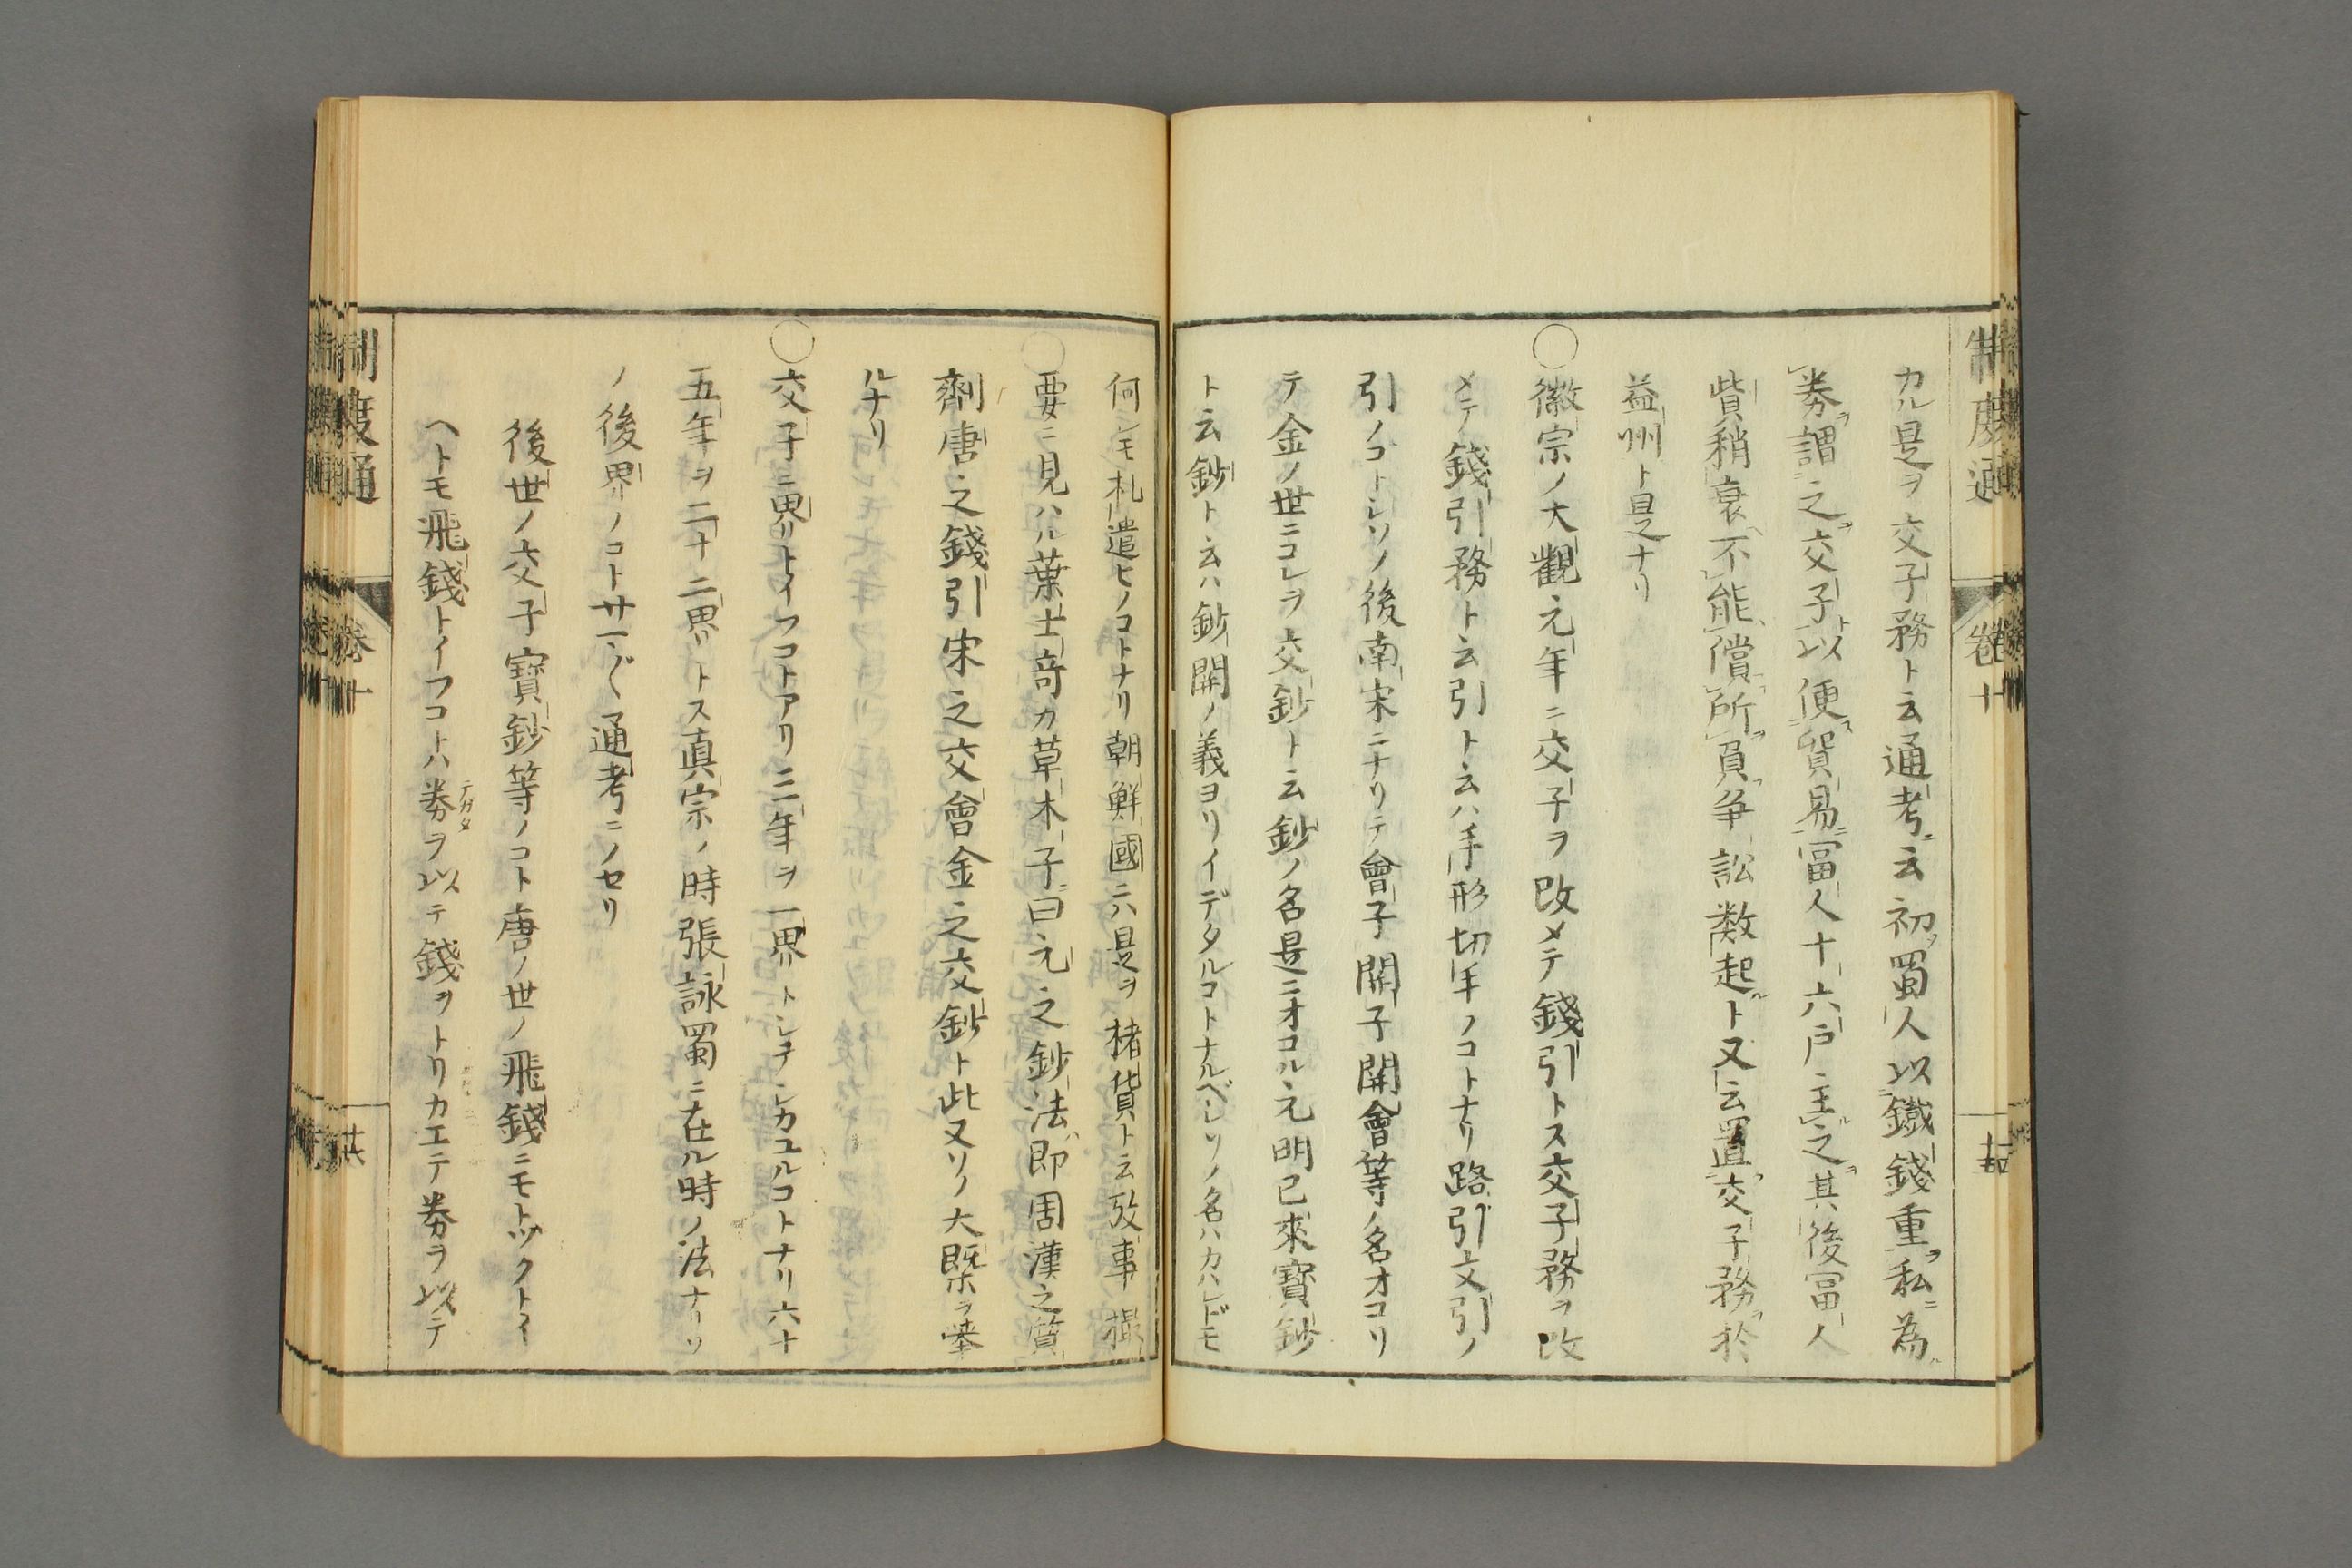 制度通 卷十
カル是ヲ交子務ト云通考ニ云初蜀人以鐵錢重私ニ為
券謂之交子以便貿易冨人十六戸主之其後冨人
貲稍衰不能償所負争訟数起ト又云置交子務於
益州ト是ナリ
○徽宗ノ大觀元年ニ交子ヲ改メテ錢引トス交子務ヲ改
メテ錢引務ト云引ト云ハ手形切手ノコトナリ路引文引ノ
引ノコトシソノ後南宋ニナリテ會子關子關會等ノ名オコリ
テ金ノ世ニコレヲ交鈔ト云鈔ノ名是ニオコル元明已來寳鈔
ト云鈔ト云ハ鈔関ノ義ヨリイデタルコトナルベシソノ名ハカハレドモ
何レモ札遣ヒノコトナリ朝鮮國ニハ是ヲ楮貨ト云攷事撮
要ニ見ハル葉士竒カ草木子ニ曰元之鈔法即周漢之質
劑唐之錢引宋之交會金之交鈔ト此又ソノ大槩ヲ挙
ルナリ
○交子ニ界トイフコトアリ三年ヲ一界トシテシカユルコトナリ六十
五年ヲ二十二界トス真宗ノ時張詠蜀ニ在ル時ノ法ナリソ
ノ後界ノコトサマ〴〵通考ニノセリ
後世ノ交子寳鈔等ノコト唐ノ世ノ飛錢ニモトヅクトイ
ヘトモ飛錢トイフコトハ券ヲ以テ錢ヲトリカエテ券ヲ以テ
テガタ
制度通 卷十